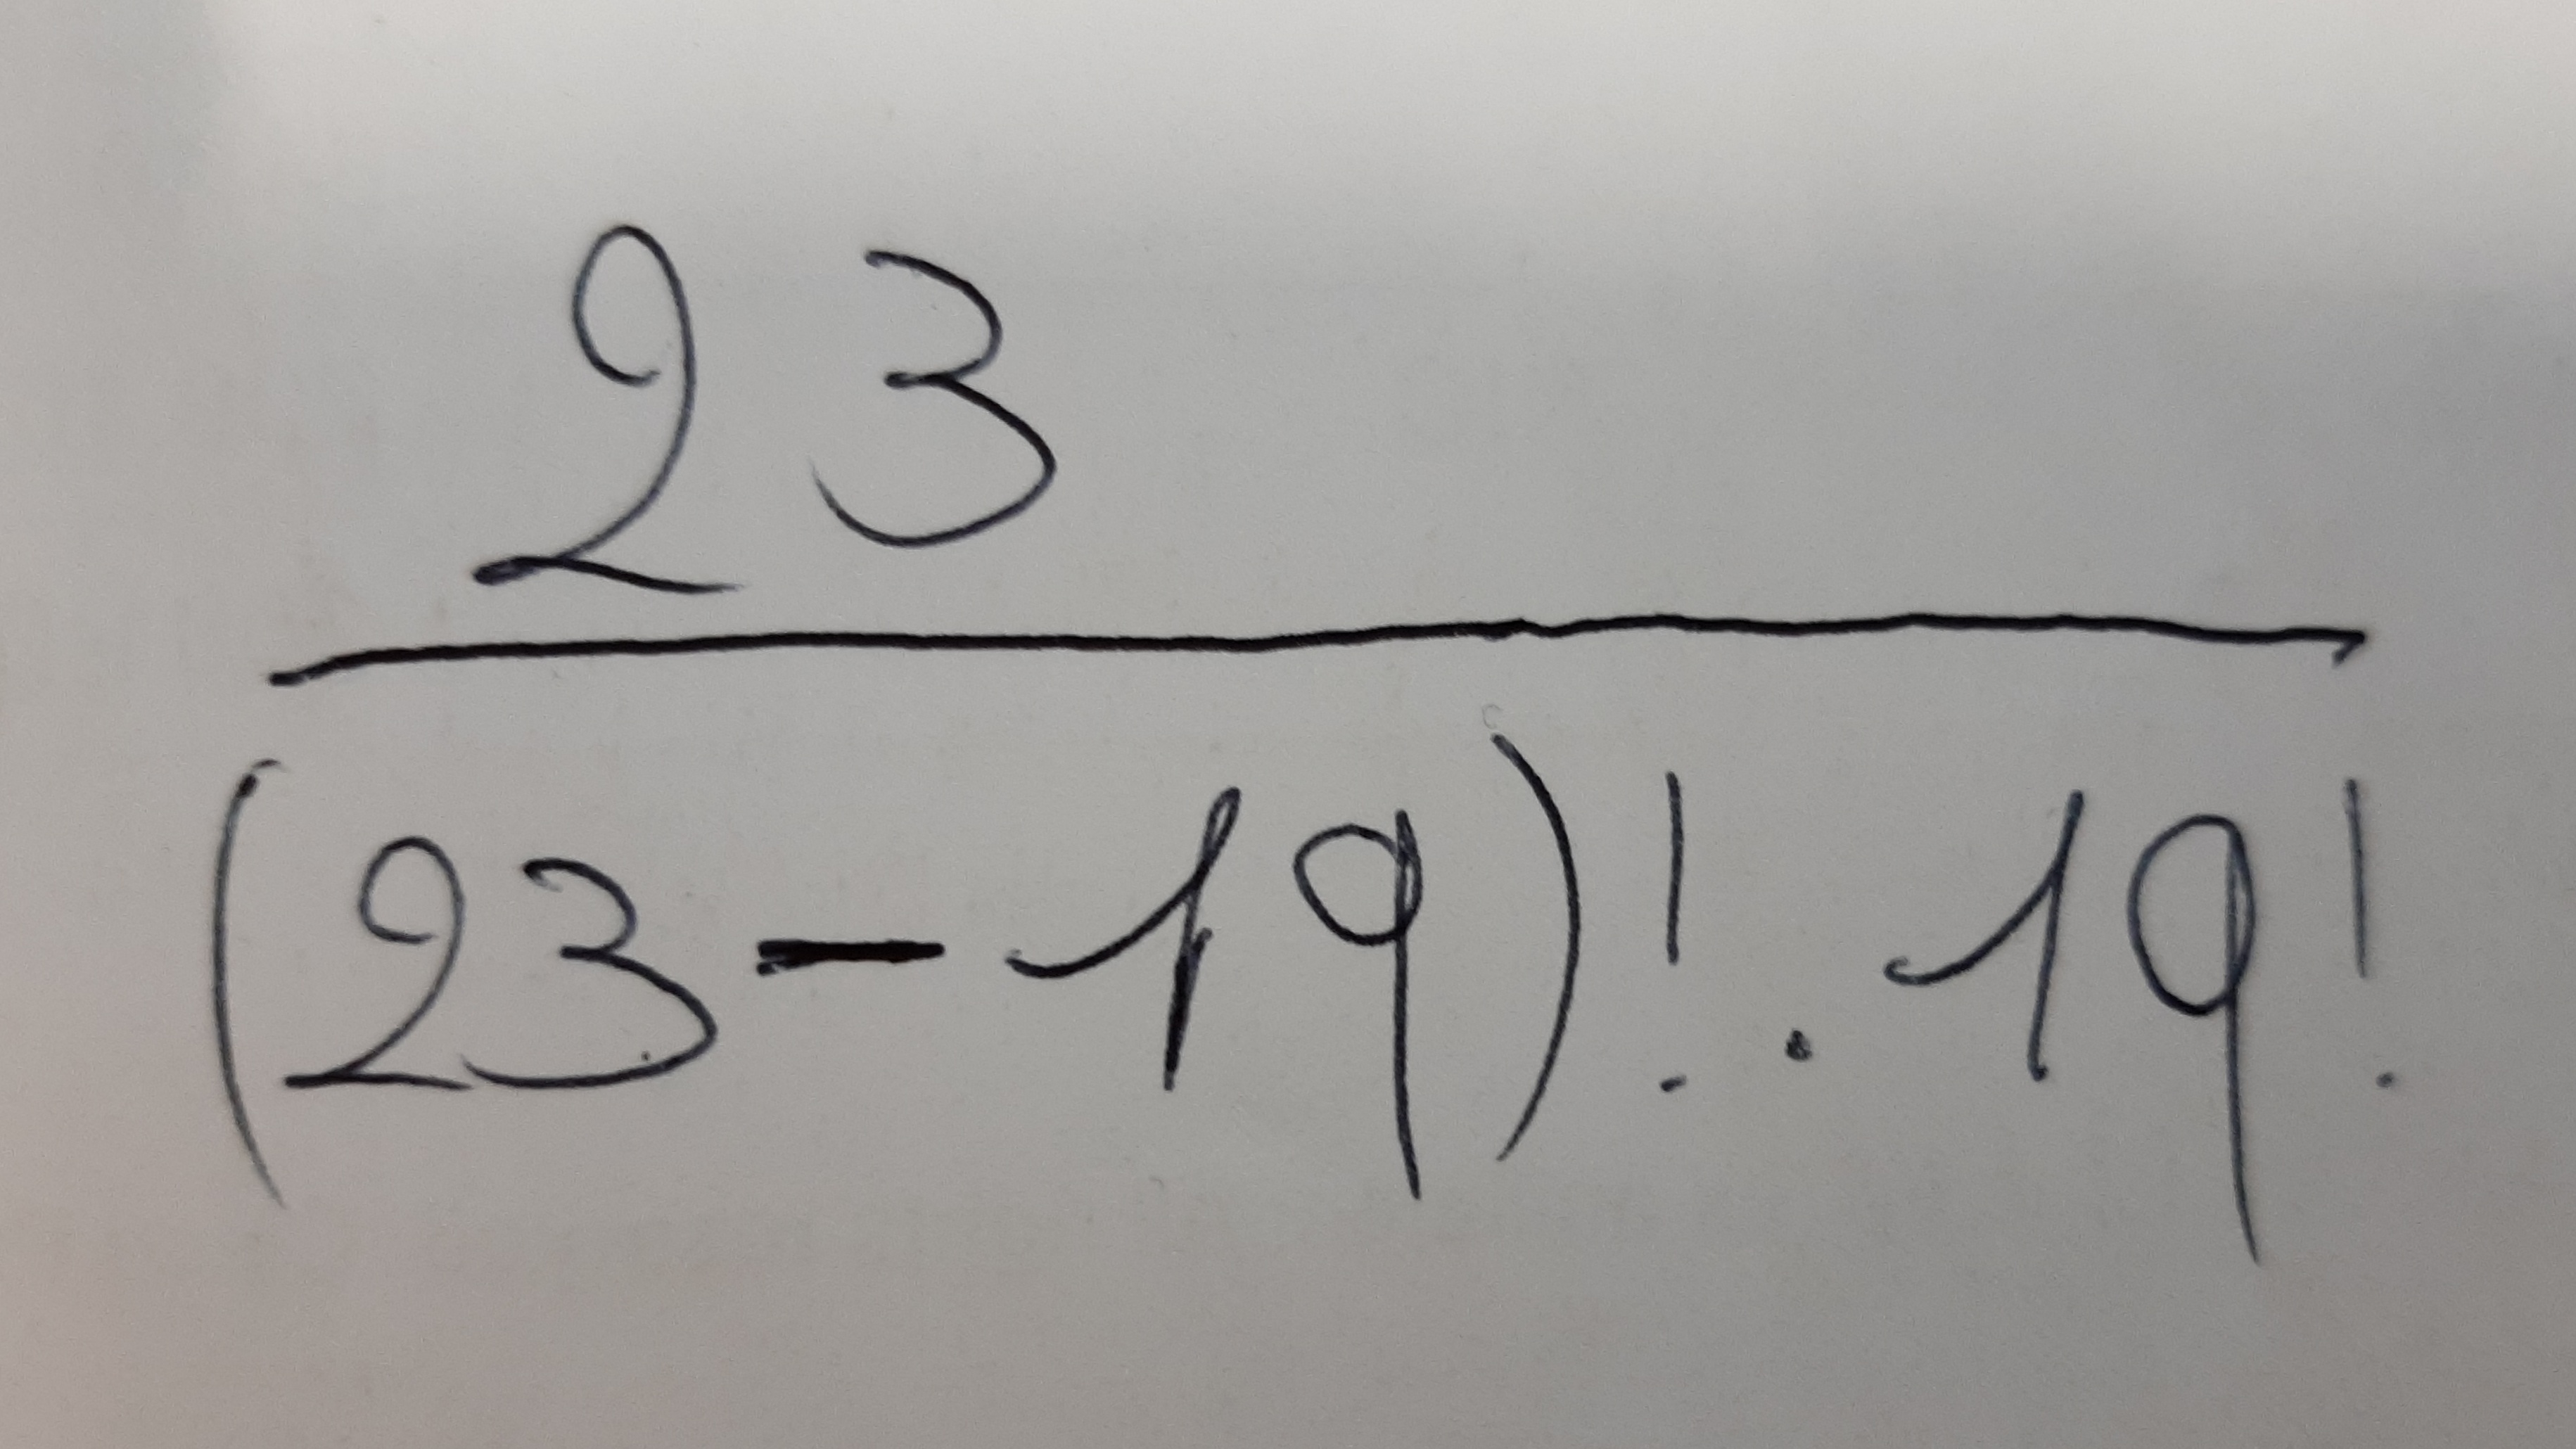 23
(23-19)!.19!